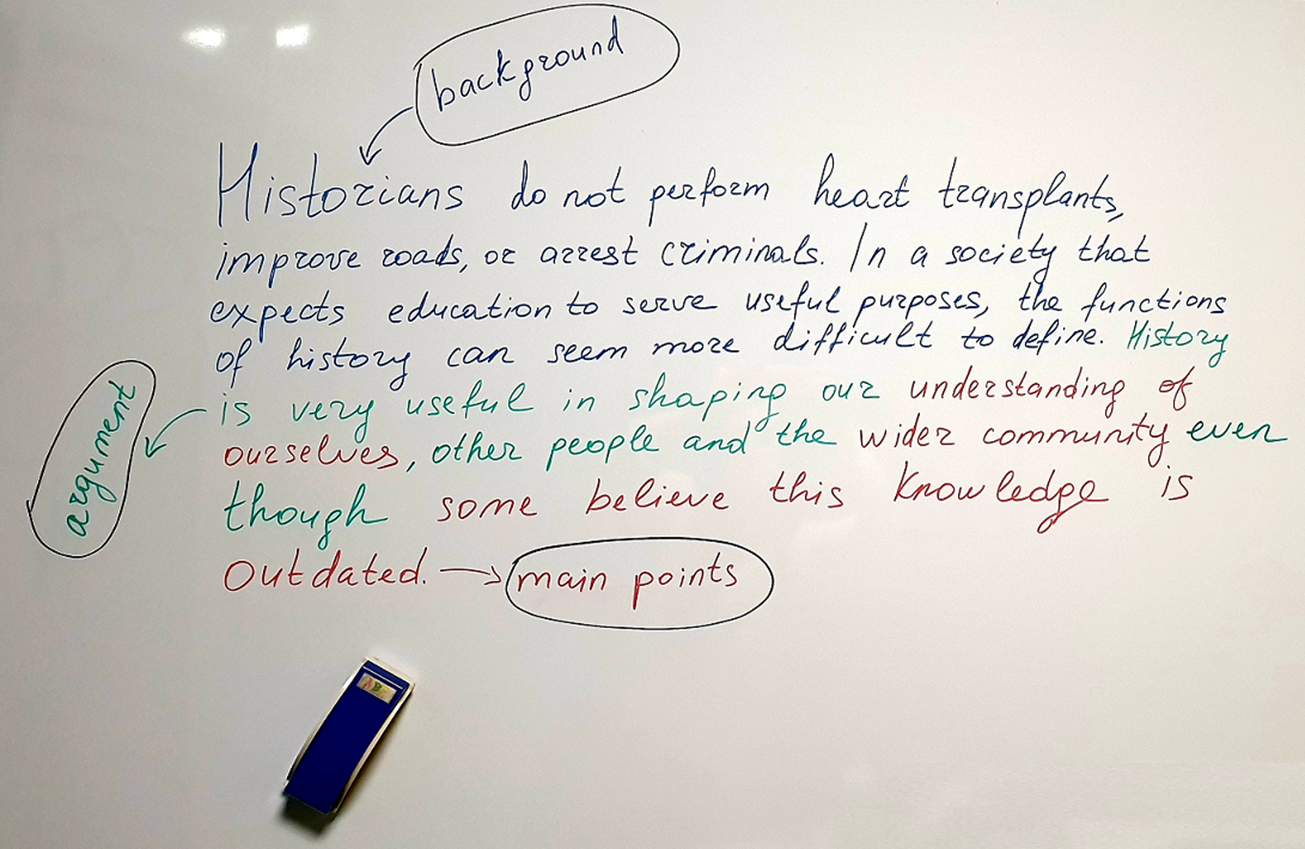 background
Historians do not perform heart transplants,
improve roads, or arrest criminals. In a society that
expects education to serve useful purposes, the functions
of history can seem more difficult to define. History
is very useful in shaping our understanding of
ourselves, other people and the wider community even
though some believe this knowledge is
outdated. → main points
argument